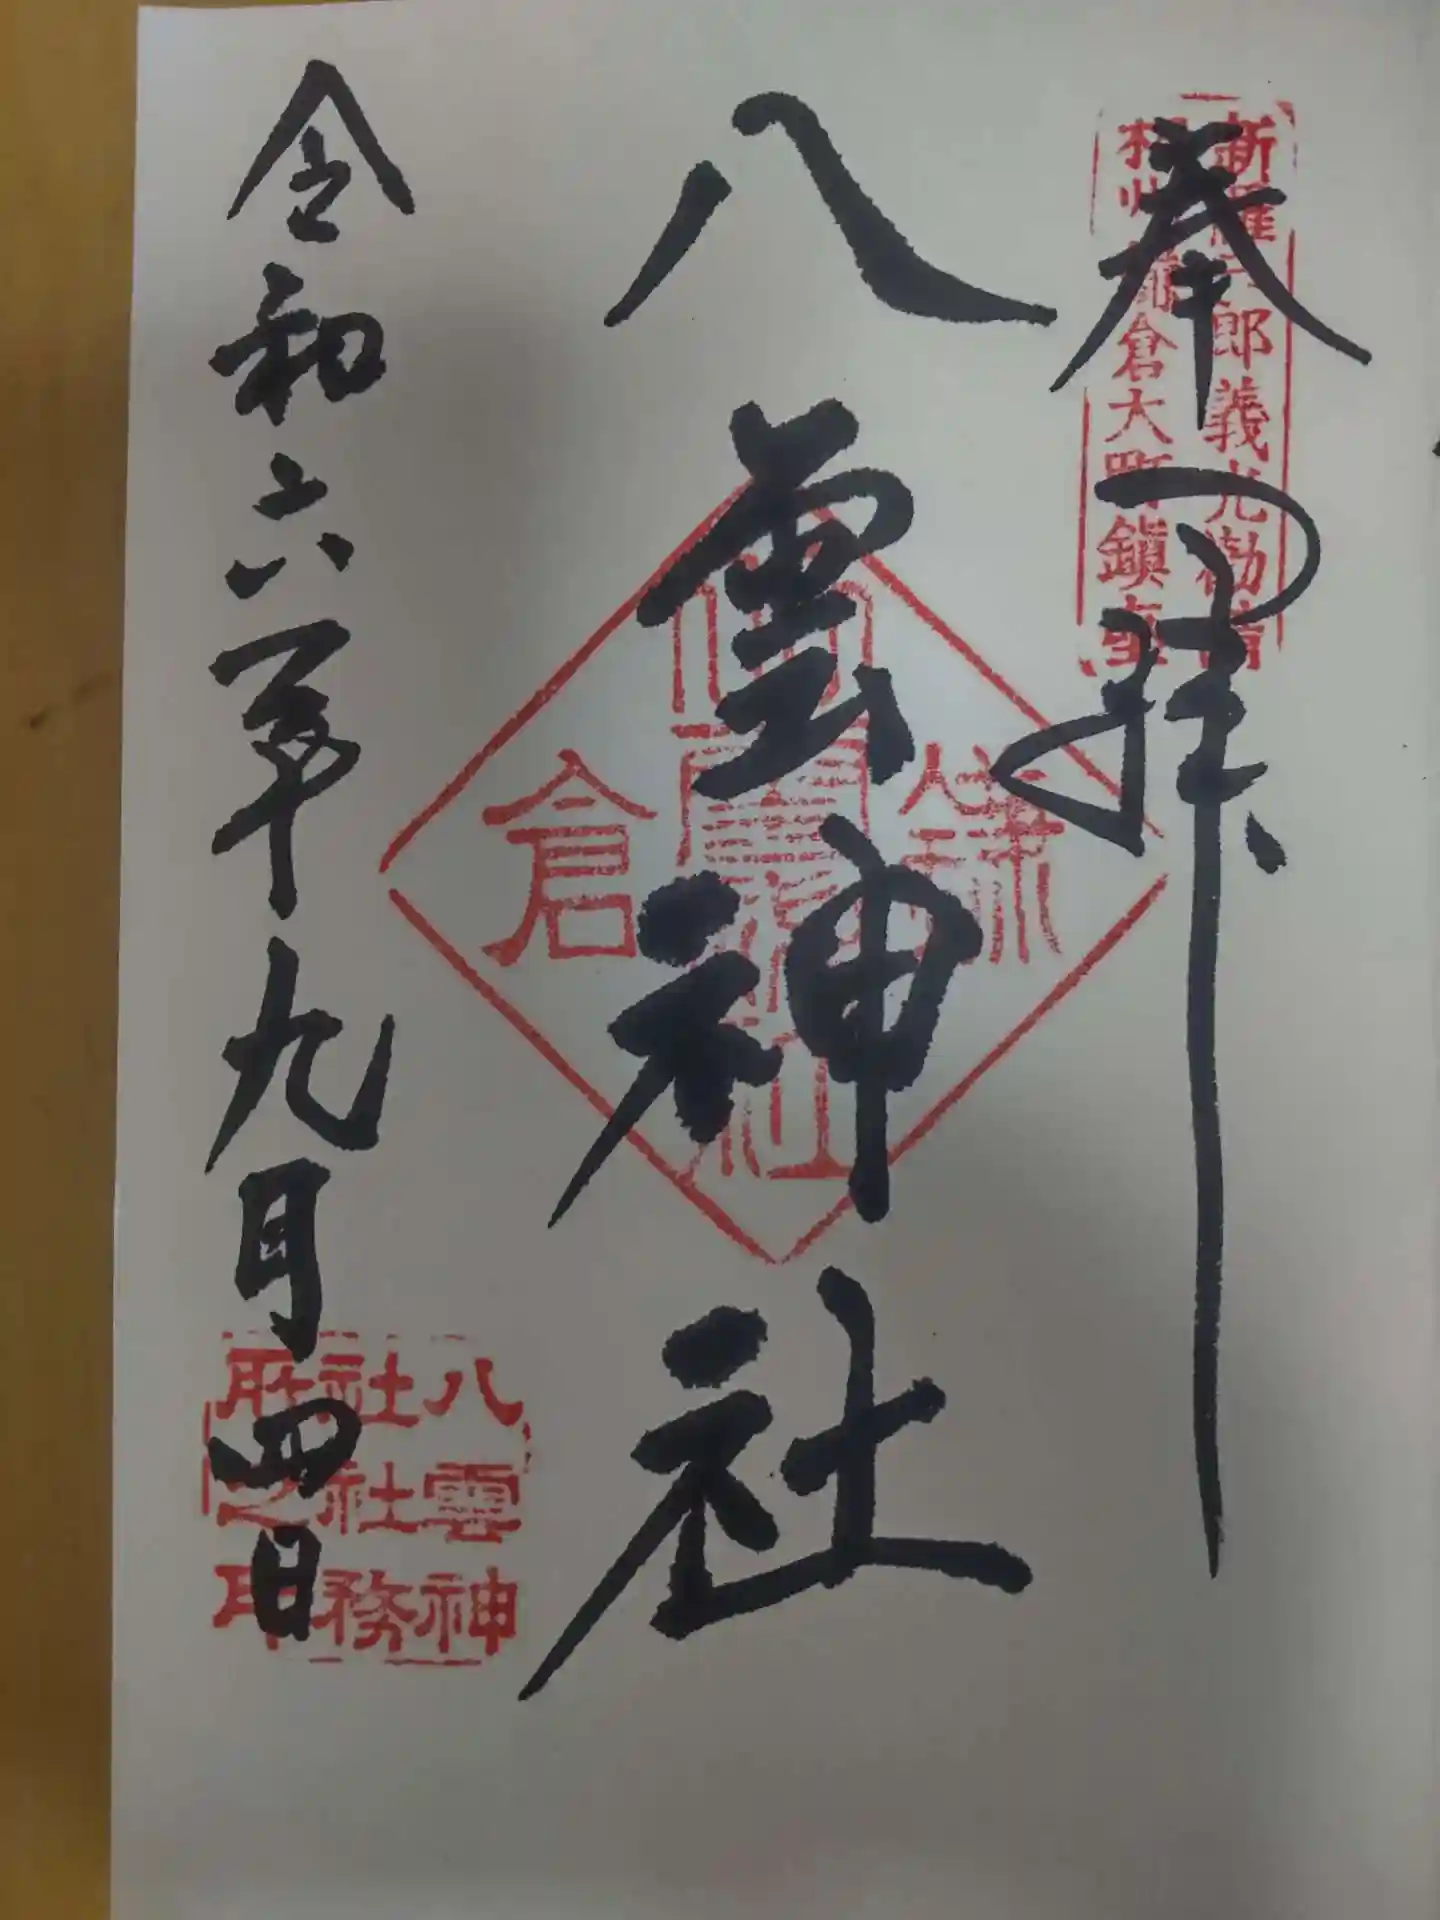 奉拝
新羅三郎義光勧請
相州鎌倉大町鎮座
八雲神社
鎌倉
令和六年九月四日
八雲神
社社務
所之印